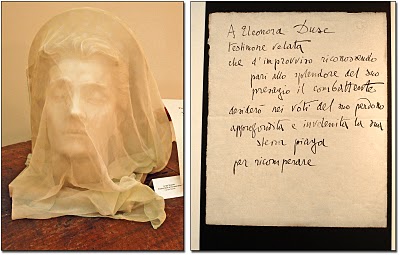 A Eleonora Duse
testimone velata
che d'improvviso riconoscendo
pari allo splendore del suo
presagio il combattente
desiderò nei voti del suo perdono
approfondita e invelenita la sua
stessa piaga
per ricomperare